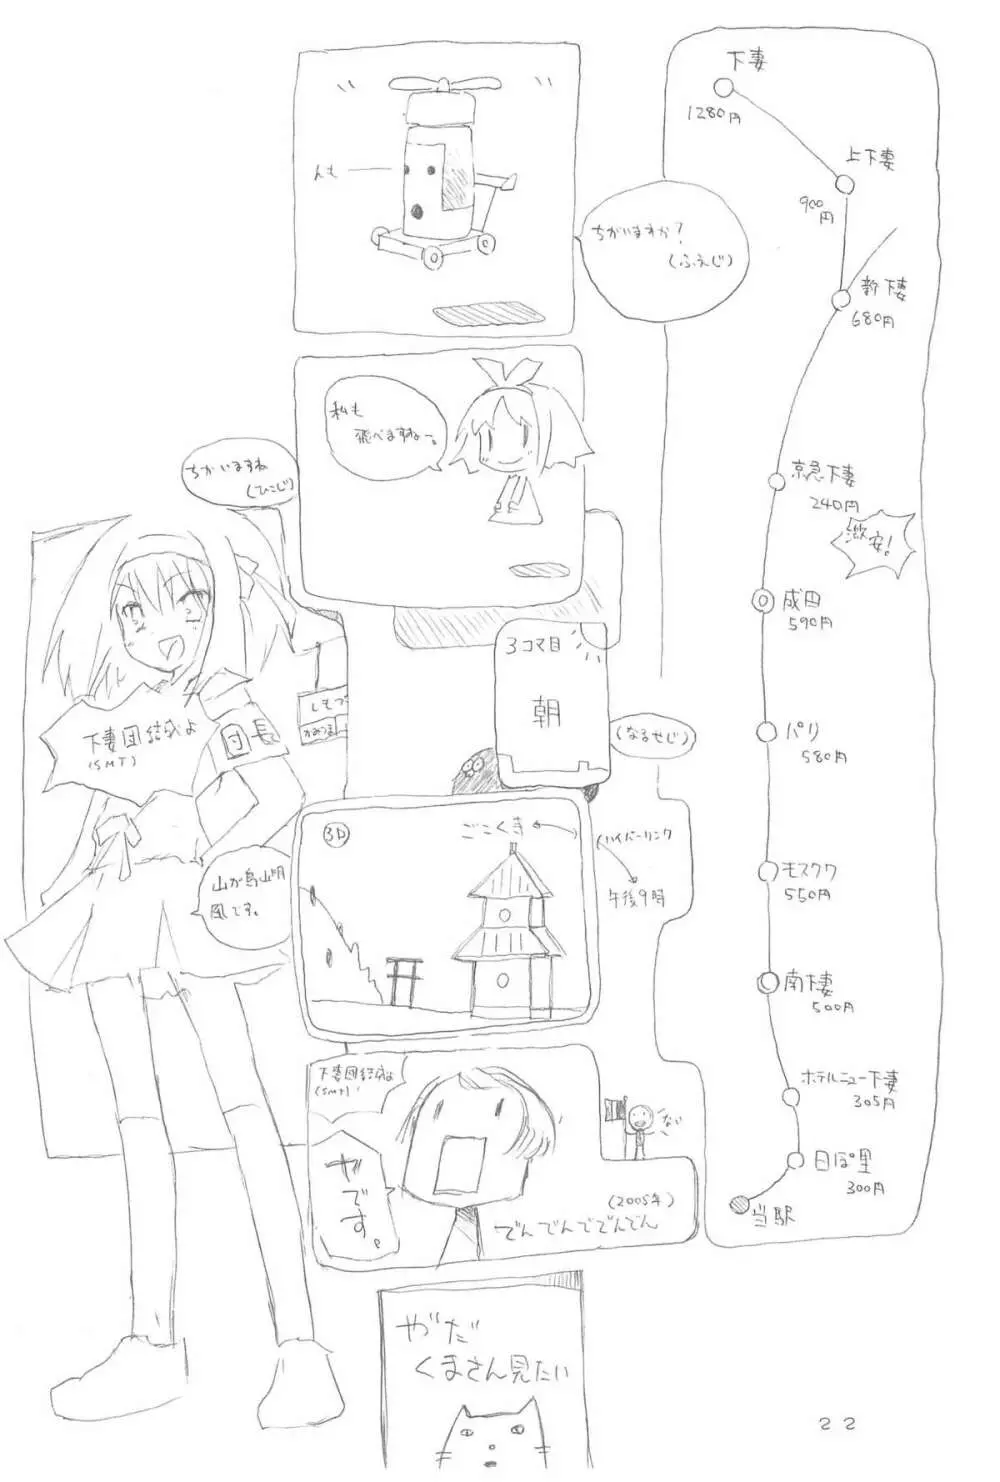 下妻
1280円
上下妻
900円
新下妻
680円
京急下妻
240円
激安!
成田
590円
パリ
580円
モスクワ
550円
南下妻
500円
ホテルニュー下妻
305円
日ぽ里
300円
当駅
んも
ちがいますか?
(ふえじ)
私も
飛べますねー。
ちがいますね
(ひこじ)
3コマ目
朝
(なるせじ)
しもつ
かみつま
下妻団結成よ
(SMT)
団長
山が鳥山明
風です。
3D
ごこく寺
ハイパーリンク
午後9時
下妻団結成よ
(SMT)
やです。
ない
(2005年)
でんでんででんでん
やだ
くまさん見たい
22